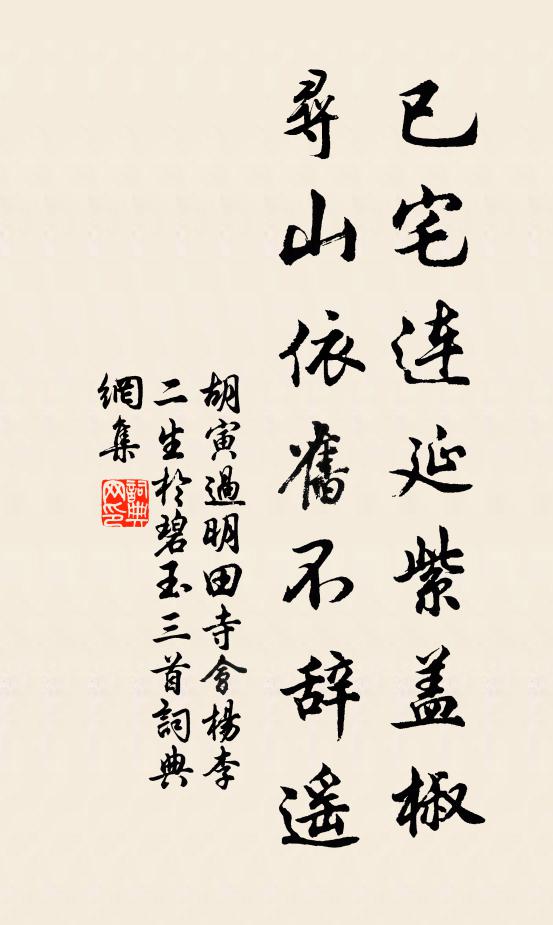 已宅连延紫盖椒
寻山依旧不辞遥
胡寅過明田寺會楊李
二生於碧玉三首詞典
網集
詞典
网印